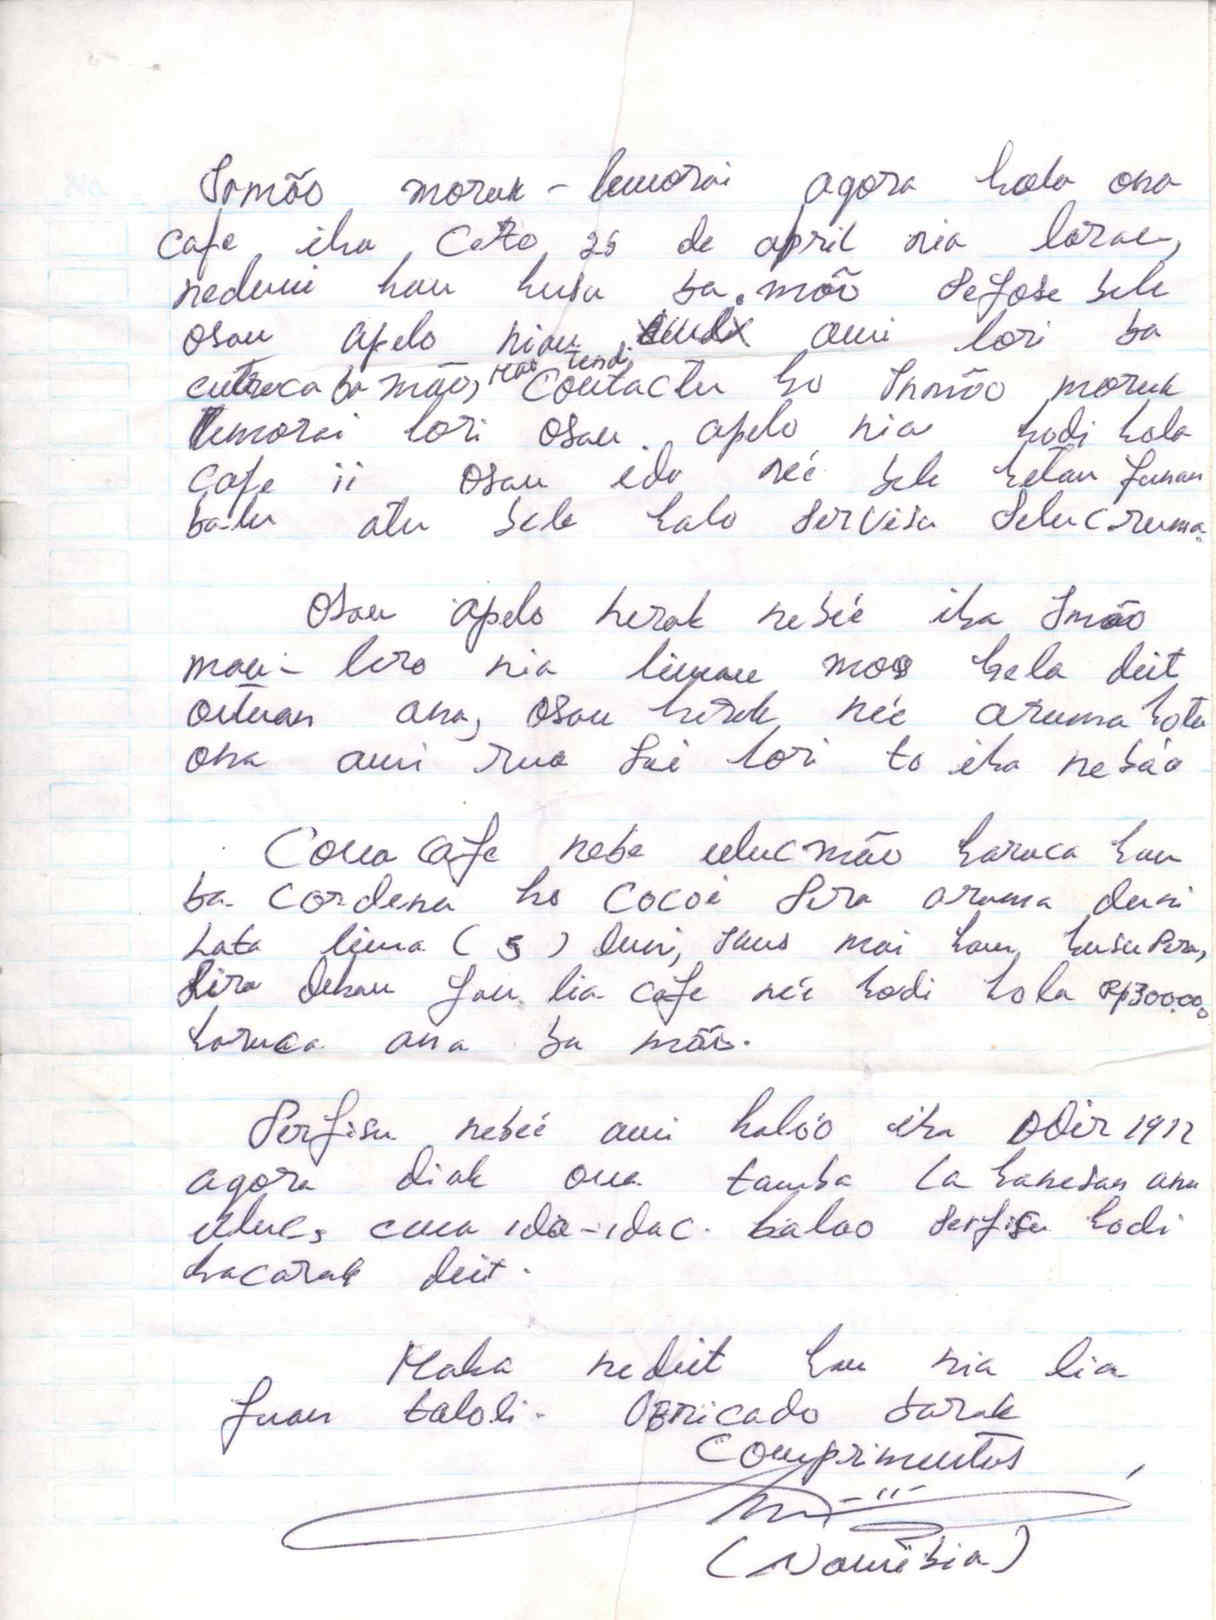 Inmão moruk - lemorai agora hola ona
cafe iha Cero 25 de april nia laran,
neduni hau husu ba mão se fose bele
osan apelo nian ami lori ba
entreca ba mão, Mão tenqi Contactu ho Inmão moruk
lemorai lori osan apelo nia hodi hola
cafe ii osan ida neé bele hetan funan
balu atu bele halo servisu seluc ruma.
Osan apelo herak nebeé iha Inmão
mau - lero nia liman mos hela deit
oituan ana, osan herak neé aruma hotu
ona ami rua sei lori to iha nebáa
Cona cafe nebe uluc mão haruca hau
ba cordena ho cocoi sira aruma duni
Lata lima (5) duni, Inus mai hau husu sira,
sira dehan fan tia cafe neé hodi hola Rp30000,
haruca ana ba mão.
Serfisu nebeé ami haláo iha DDir 1912
agora diak ona tamba la hanesan ana
uluc, cma ida-idac halao serfisu hodi
hacarak deit.
Maka nedeit hau nia lia
fuan taloli. Obricado barak
Comprimentos
(Namíbia)